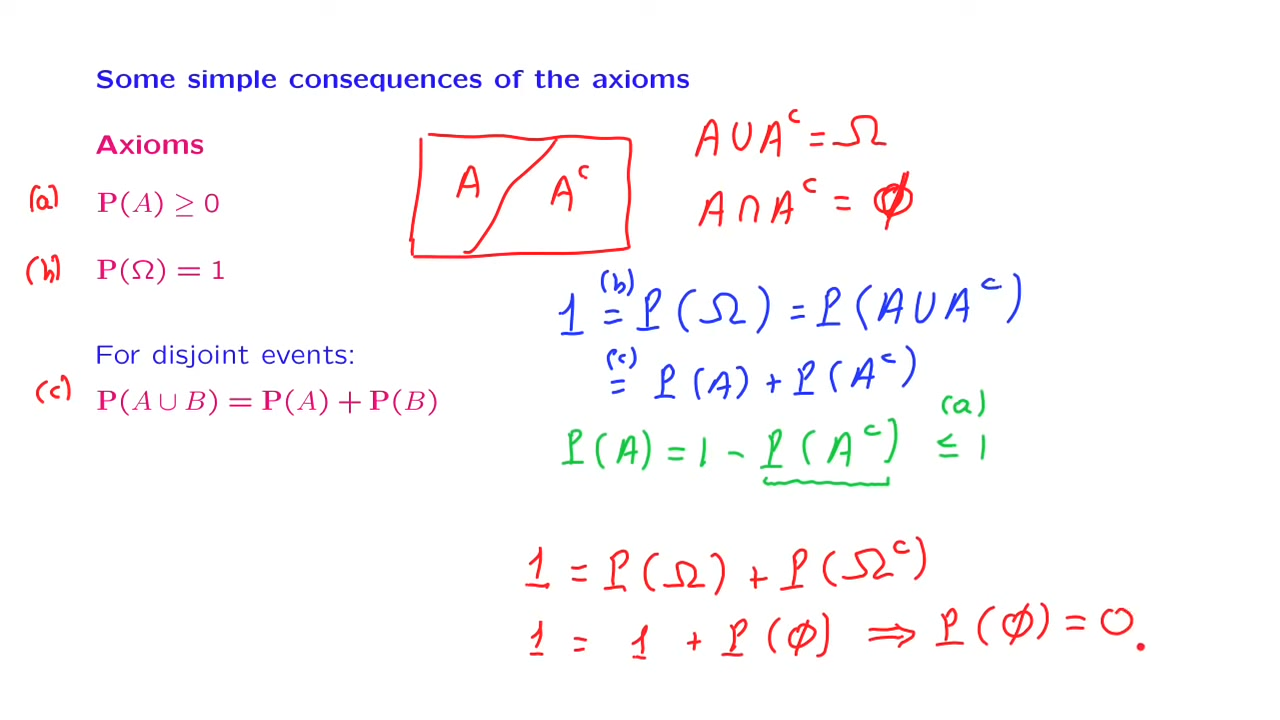 Some simple consequences of the axioms
Axioms
(a) P(A) ≥ 0
(b) P(Ω) = 1
For disjoint events:
(c) P(A ∪ B) = P(A) + P(B)
A Aᶜ
A ∪ Aᶜ = Ω
A ∩ Aᶜ = Ø
1 (b)= P(Ω) = P(A ∪ Aᶜ)
(c)= P(A) + P(Aᶜ)
P(A) = 1 - P(Aᶜ) (a)≤ 1
1 = P(Ω) + P(Ωᶜ)
1 = 1 + P(Ø) ⇒ P(Ø) = 0.